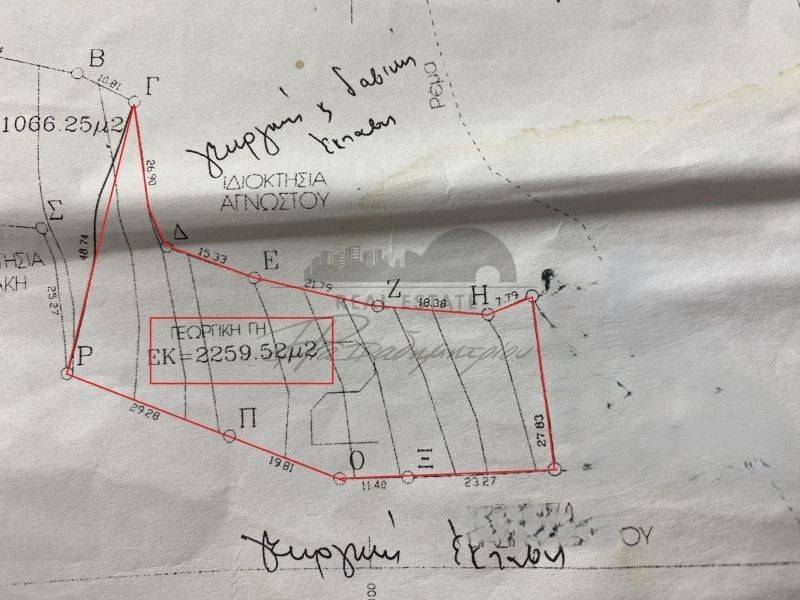 B
10.81
Γ
1066.25μ2
γεωργική & δασική
έκταση
Ρέμα
26.90
ΙΔΙΟΚΤΗΣΙΑ
ΑΓΝΩΣΤΟΥ
Σ
Δ
48.74
15.33
Ε
ΤΗΣΙΑ
ΑΚΗ
25.27
21.79
Ζ
18.38
Η
7.79
REAL ESTATE
ΓΕΩΡΓΙΚΗ ΓΗ
ΕΚ=2259.52μ2
Ρ
29.28
Π
19.81
Ο
11.40
Ξ
23.27
27.83
ΟΥ
γεωργική έκταση
100